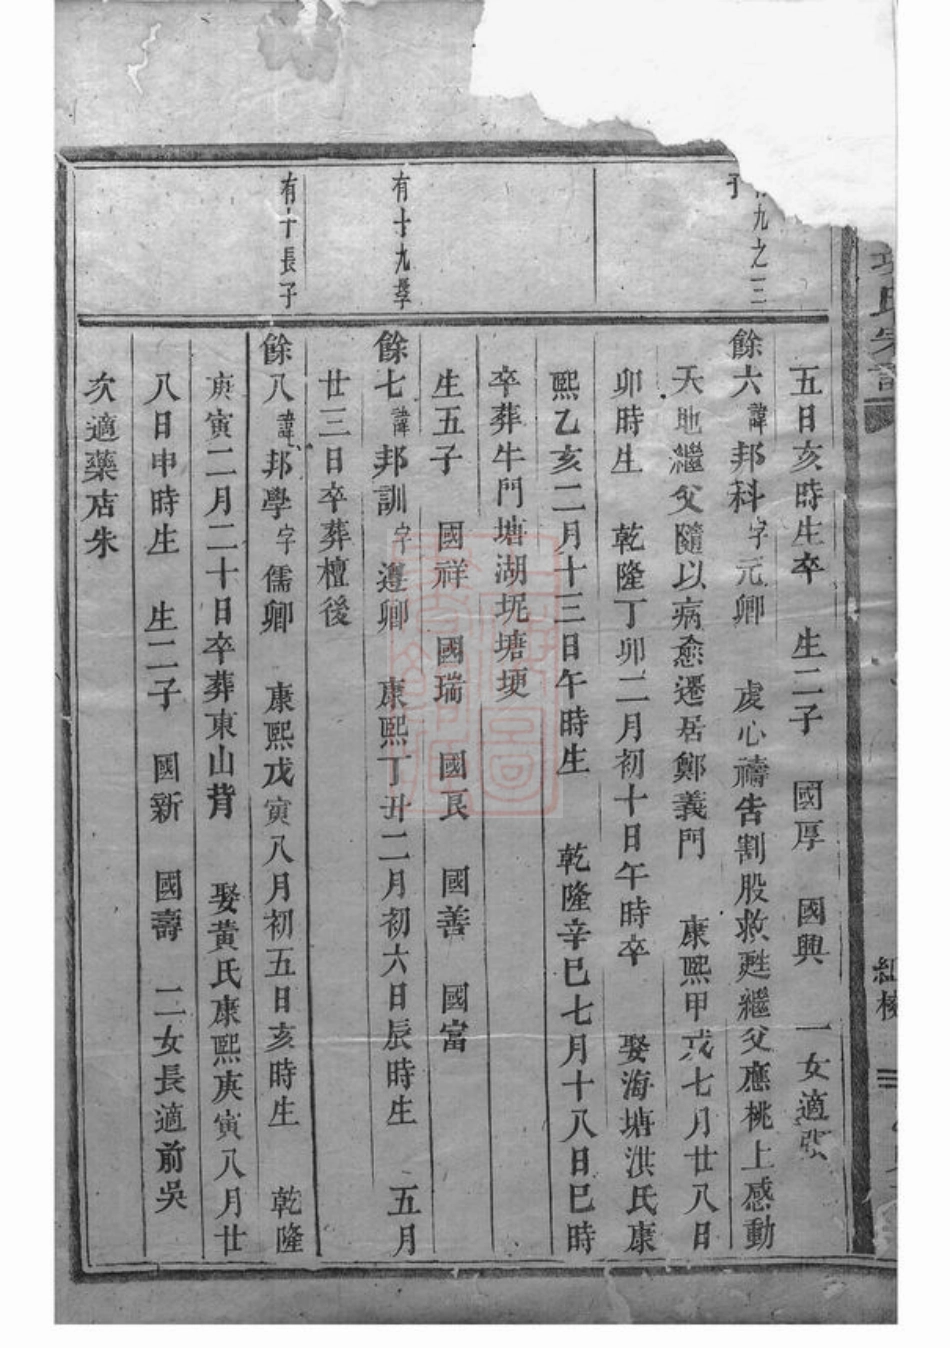 氏宗譜
九之三
子
五日亥時生卒 生二子 國厚 國興 一女適張
餘六諱邦科字元卿 虔心禱告割股救甦繼父應桃上感動
天地繼父隨以病愈遷居鄭義門 康熙甲戌七月廿八日
卯時生 乾隆丁卯二月初十日午時卒 娶海塘洪氏康
熙乙亥二月十三日午時生 乾隆辛巳七月十八日巳時
卒葬牛門塘湖坭塘埂
生五子 國祥 國瑞 國良 國善 國富
有十九學
餘七諱邦訓字遵卿 康熙丁丑二月初六日辰時生 五月
廿三日卒葬檀後
有十長子
餘八諱邦學字儒卿 康熙戊寅八月初五日亥時生 乾隆
庚寅二月二十日卒葬東山背 娶黃氏康熙庚寅八月廿
八日申時生 生二子 國新 國壽 二女長適前吳
次適藥店朱